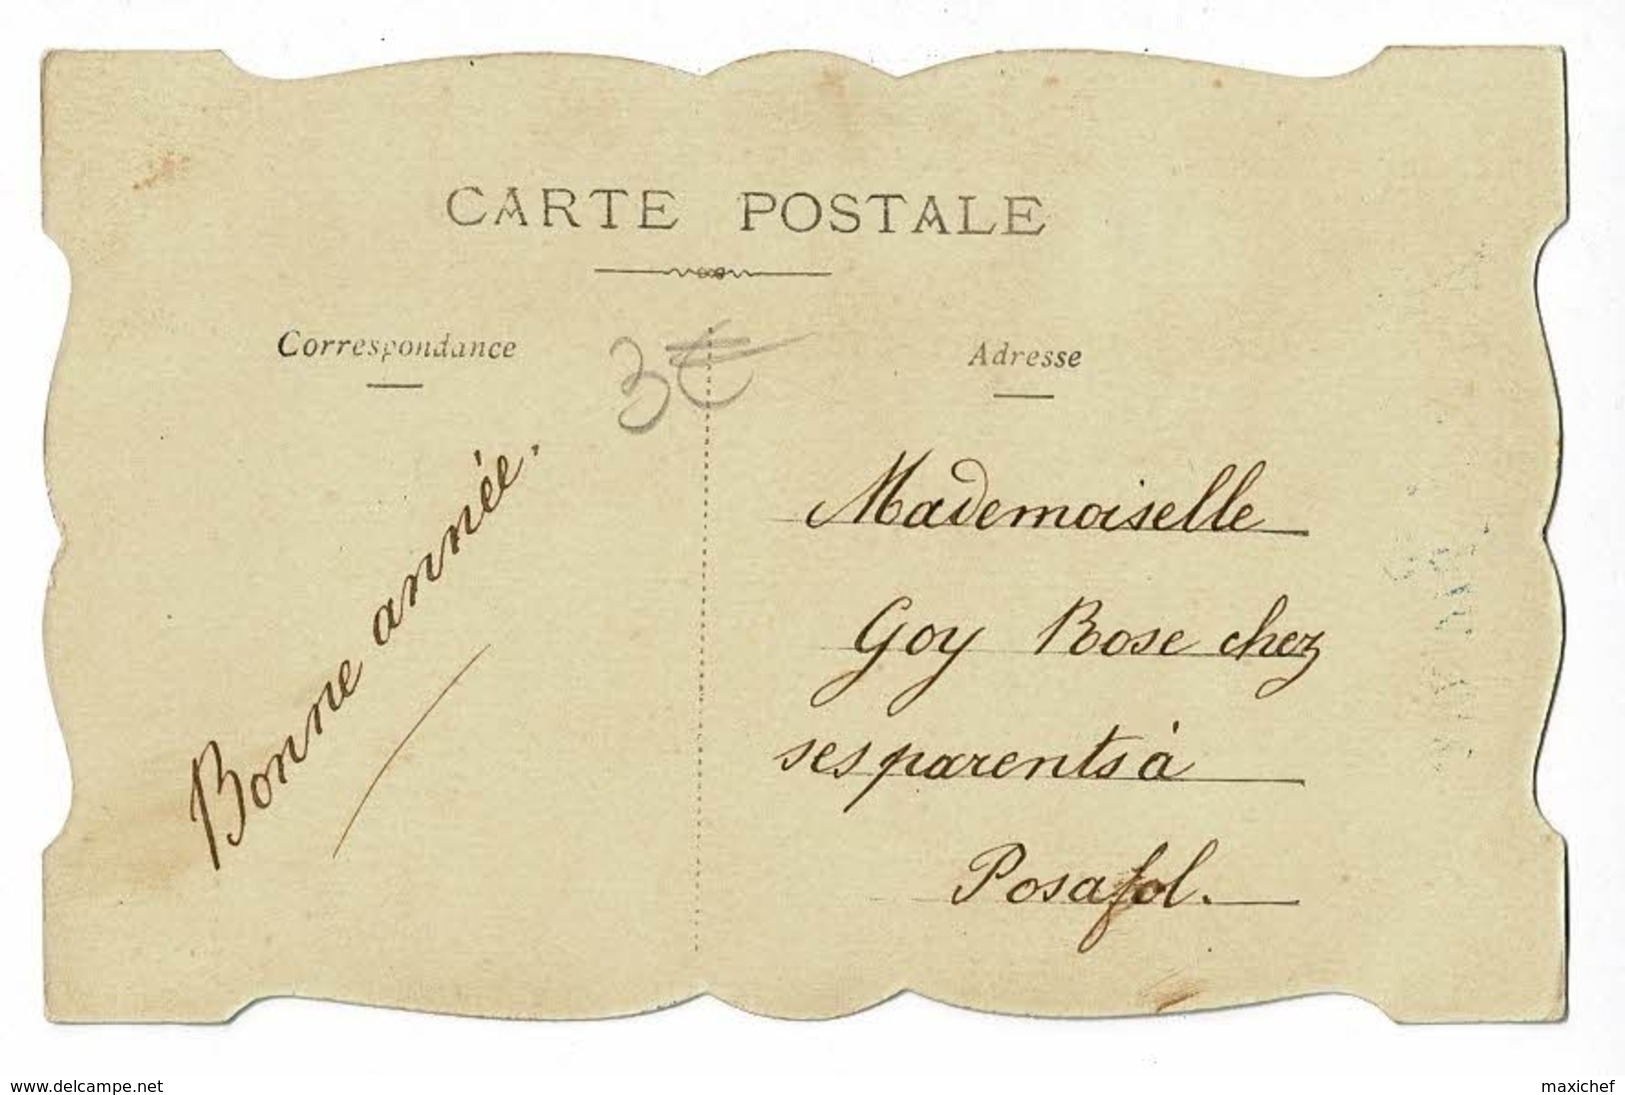 CARTE POSTALE
Correspondance
3€
Adresse
Bonne année.
Mademoiselle
Goy Rose chez
ses parents à
Posafol.
www.delcampe.net
maxichef